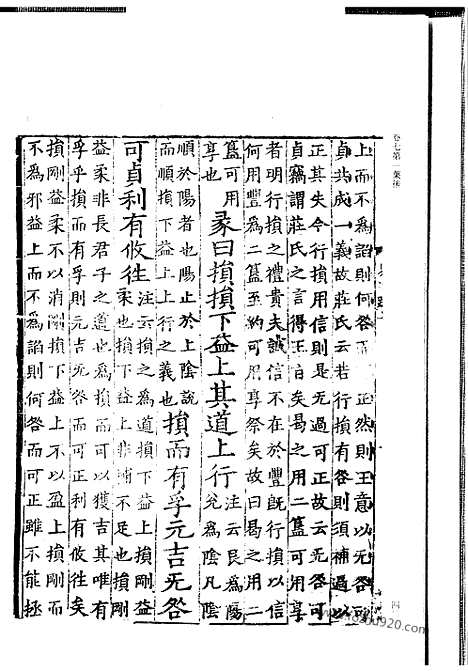 卷七第一葉後
上而不爲諂則何咎而正然則王意以无咎可
貞共成一義故莊氏云若行損有咎則須補過以
正其失今行損用信則是无過可正故云无咎可
貞竊謂莊氏之言得王旨矣曷之用二簋可用享
者明行損之禮貴夫誠信不在於豐旣行損以信
何用豐爲二簋至約可用享祭矣故曰曷之用二
簋可用
享也
彖曰損損下益上其道上行
注云艮爲陽
兌爲陰凡陰
順於陽者也陽止於上陰說
而順損下益上上行之義也
損而有孚元吉无咎
可貞利有攸往
注云損之爲道損下益上損剛益
柔也損下益上非補不足也損剛
益柔非長君子之道也爲損而可以獲吉其唯有
孚乎損而有孚則元吉无咎而可正利有攸往矣
損剛益柔不以消剛損下益上不以盈上損剛而
不爲邪益上而不爲諂則何咎而可正雖不能拯
四